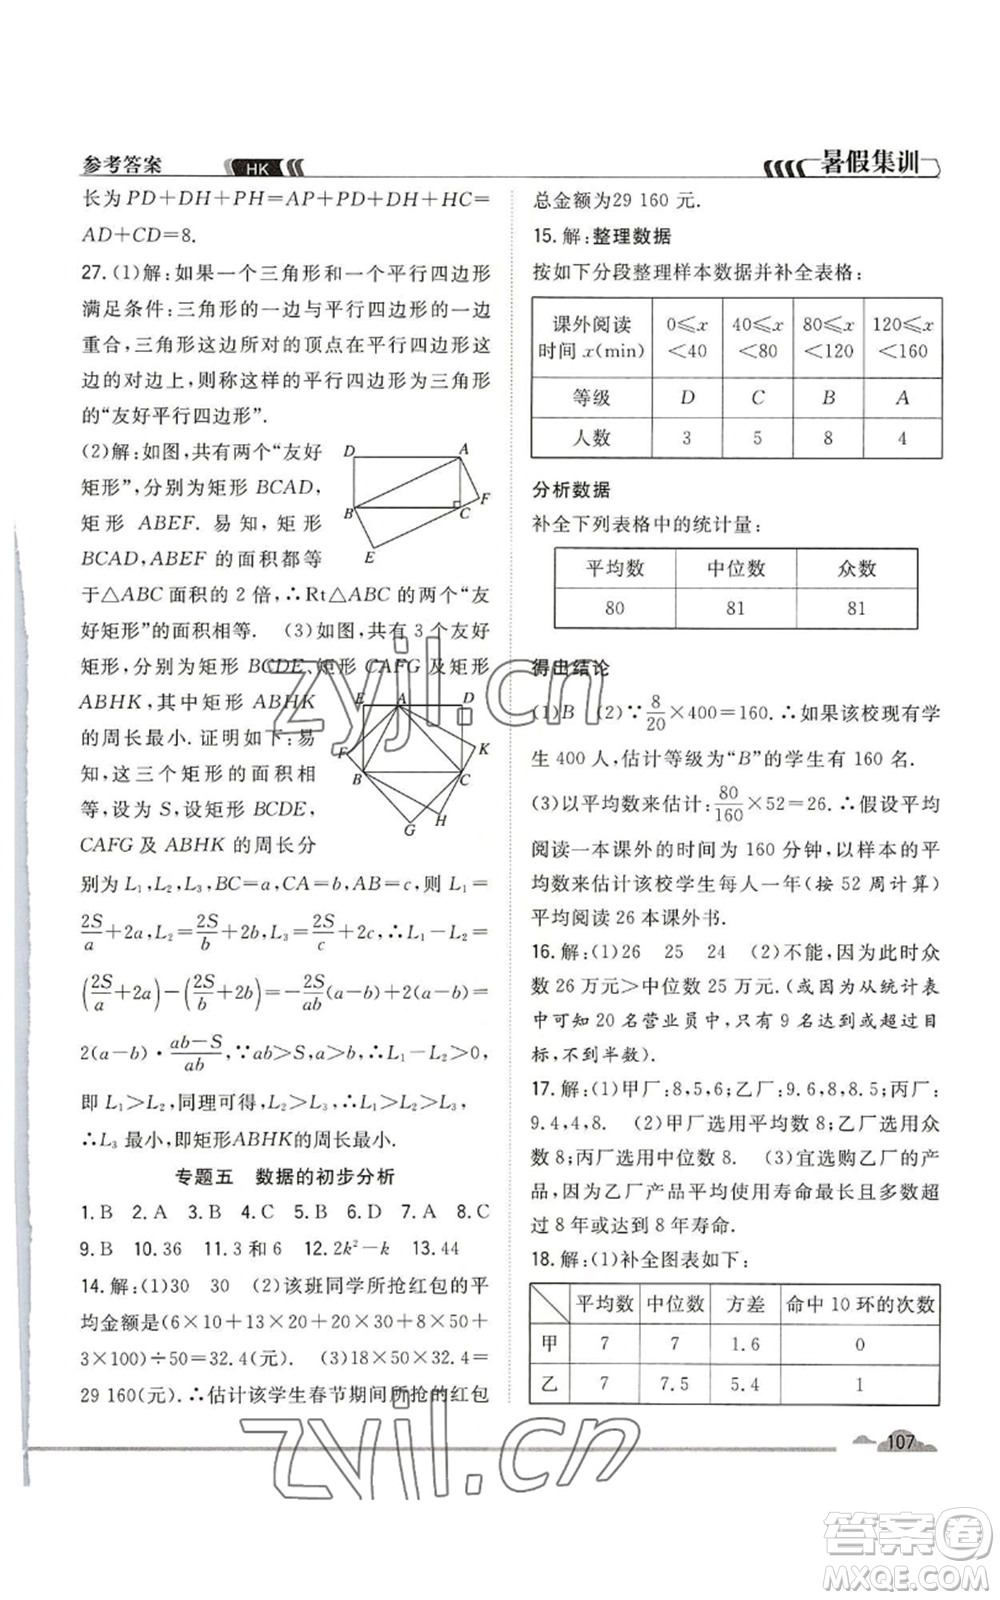 参考答案 HK 暑假集训
长为 PD+DH+PH=AP+PD+DH+HC=
AD+CD=8.
27.(1)解:如果一个三角形和一个平行四边形
满足条件:三角形的一边与平行四边形的一边
重合,三角形这边所对的顶点在平行四边形这
边的对边上,则称这样的平行四边形为三角形
的“友好平行四边形”.
(2)解:如图,共有两个“友好
矩形”,分别为矩形 BCAD,
矩形 ABEF. 易知,矩形
BCAD,ABEF 的面积都等
于△ABC 面积的 2 倍,∴Rt△ABC 的两个“友
好矩形”的面积相等. (3)如图,共有 3 个友好
矩形,分别为矩形 BCDE、矩形 CAFG 及矩形
ABHK,其中矩形 ABHK
的周长最小. 证明如下:易
知,这三个矩形的面积相
等,设为 S,设矩形 BCDE,
CAFG 及 ABHK 的周长分
D A F B C E
E A D F K B C H G
别为 L₁,L₂,L₃,BC=a,CA=b,AB=c,则 L₁=
2S/a+2a,L₂=2S/b+2b,L₃=2S/c+2c,∴L₁-L₂=
(2S/a+2a)-(2S/b+2b)=-2S/ab(a-b)+2(a-b)=
2(a-b)·(ab-S)/ab,∵ab>S,a>b,∴L₁-L₂>0,
即 L₁>L₂,同理可得,L₂>L₃,
∴L₃ 最小,即矩形ABHK的周长最小.
专题五 数据的初步分析
1.B 2.A 3.B 4.C 5.B 6.D 7.A 8.C
9.B 10.36 11.3 和 6 12.2k²-k 13.44
14.解:(1)30 30 (2)该班同学所抢红包的平
均金额是(6×10+13×20+20×30+8×50+
3×100)÷50=32.4(元). (3)18×50×32.4=
29 160(元).∴估计该学生春节期间所抢的红包
总金额为29 160 元.
15.解:整理数据
按如下分段整理样本数据并补全表格:
课外阅读时间 x(min) 0≤x<40 40≤x<80 80≤x<120 120≤x<160
等级 D C B A
人数 3 5 8 4
分析数据
补全下列表格中的统计量:
平均数 中位数 众数
80 81 81
得出结论
(1)B (2)∵8/20×400=160.∴如果该校现有学
生 400 人,估计等级为“B”的学生有 160 名.
(3)以平均数来估计:80/160×52=26.∴假设平均
阅读一本课外的时间为 160 分钟,以样本的平
均数来估计该校学生每人一年(按 52 周计算)
平均阅读 26 本课外书.
16.解:(1)26 25 24 (2)不能,因为此时众
数 26 万元>中位数 25 万元.(或因为从统计表
中可知 20 名营业员中,只有 9 名达到或超过目
标,不到半数).
17.解:(1)甲厂:8,5,6;乙厂:9.6,8,8.5;丙厂:
9.4,4,8. (2)甲厂选用平均数 8;乙厂选用众
数 8;丙厂选用中位数 8. (3)宜选购乙厂的产
品,因为乙厂产品平均使用寿命最长且多数超
过 8 年或达到 8 年寿命.
18.解:(1)补全图表如下:
平均数 中位数 方差 命中 10 环的次数
甲 7 7 1.6 0
乙 7 7.5 5.4 1
107
zyjl.cn
zyjl.cn
答案圈
MXQE.COM